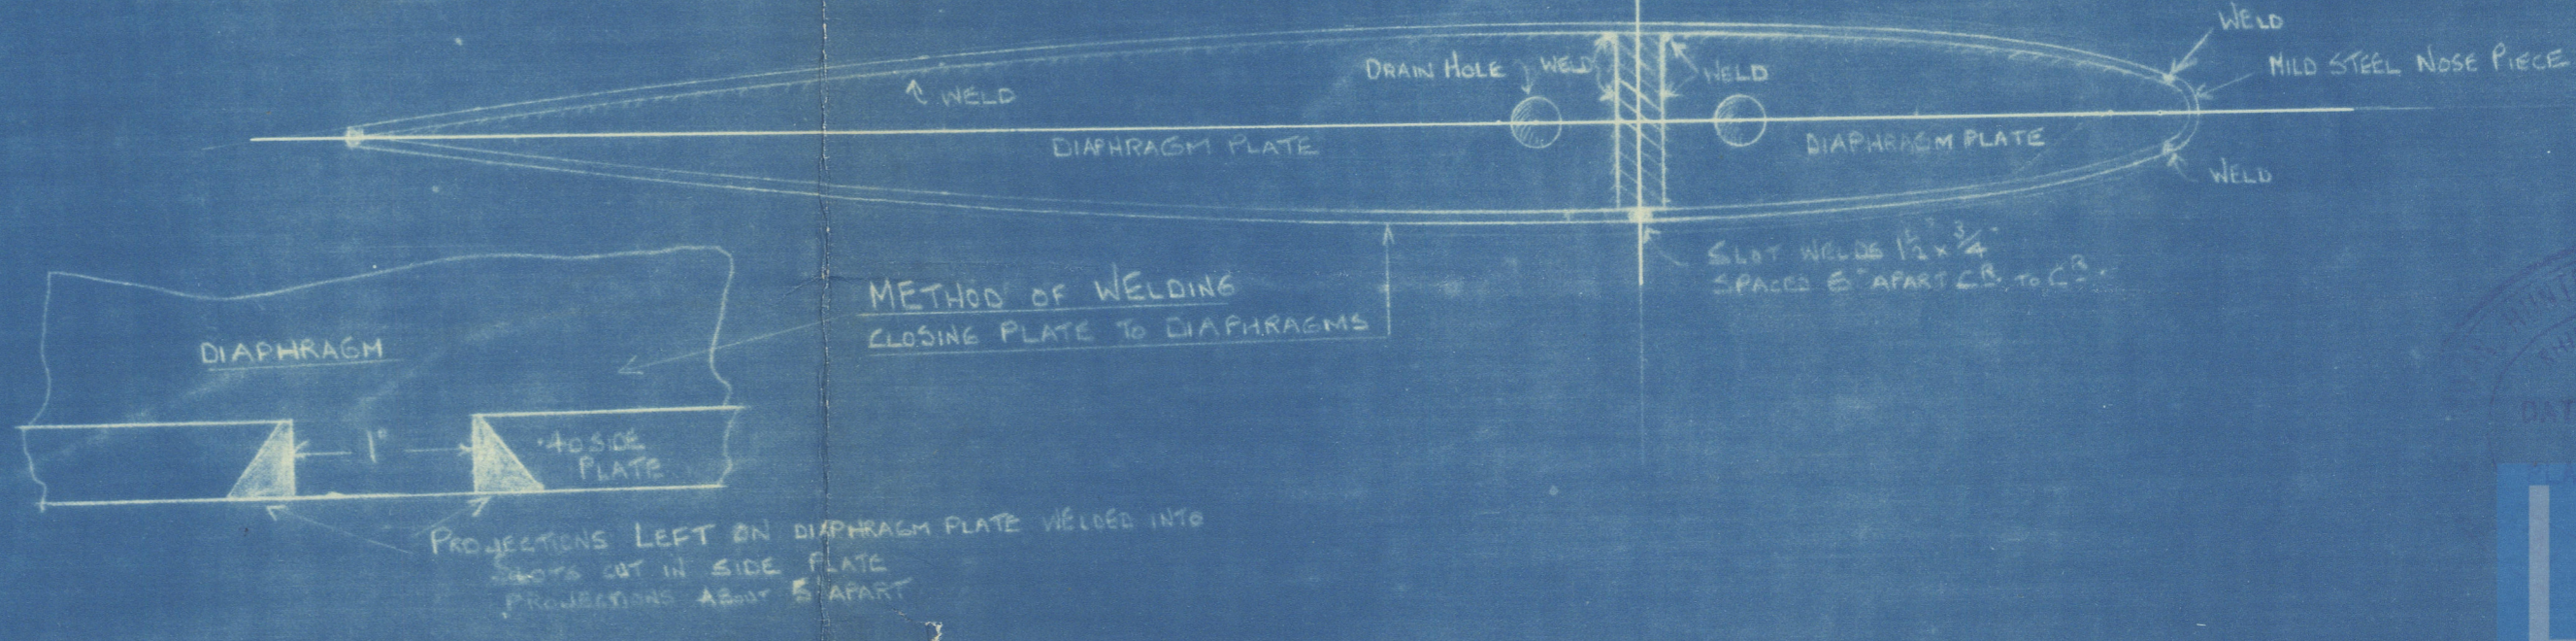 WELD
MILD STEEL NOSE PIECE
DRAIN HOLE
WELD
WELD
WELD
DIAPHRAGM PLATE
DIAPHRAGM PLATE
WELD
SLOT WELDS 1½" x ¾"
SPACED 6" APART CR. TO CR.
METHOD OF WELDING
CLOSING PLATE TO DIAPHRAGMS
DIAPHRAGM
1"
.40 SIDE
PLATE
PROJECTIONS LEFT ON DIAPHRAGM PLATE WELDED INTO
SLOTS CUT IN SIDE PLATE
PROJECTIONS ABOUT 5" APART